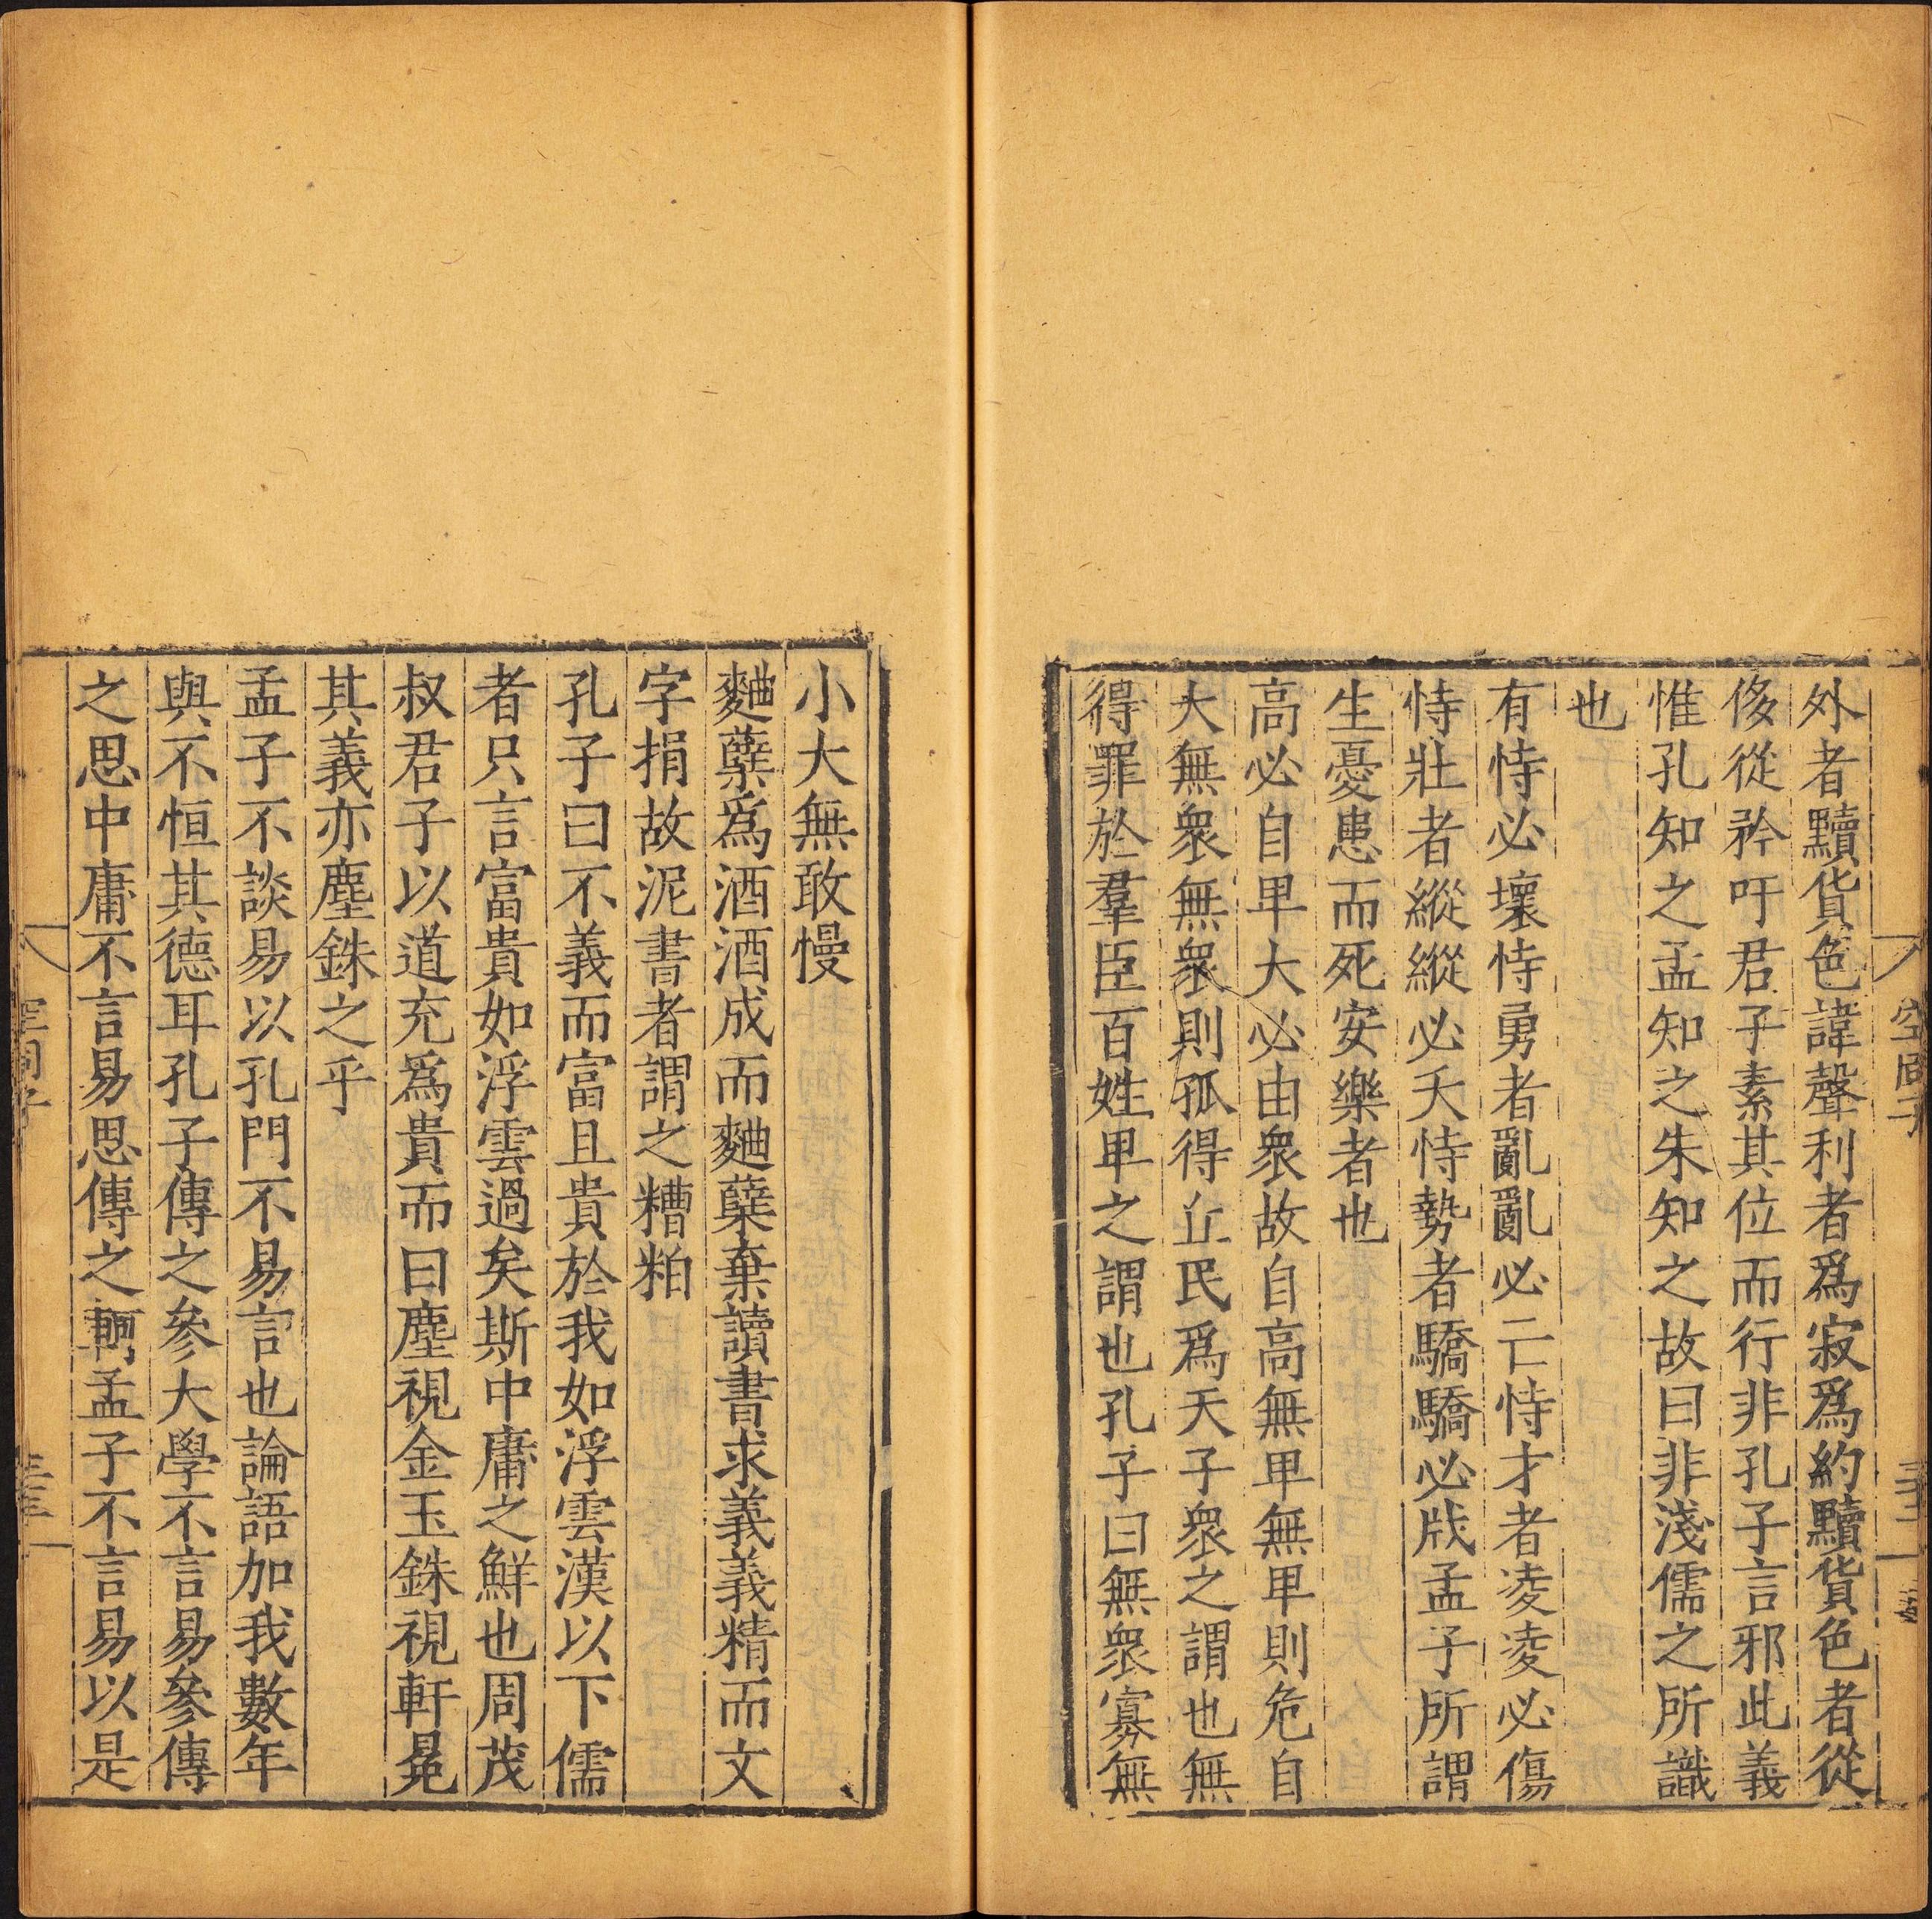 外者黷貨色諱聲利者爲寂爲約黷貨色者從
侈從矜吁君子素其位而行非孔子言邪此義
惟孔知之孟知之朱知之故曰非淺儒之所識
也
有恃必壞恃勇者亂亂必亡恃才者凌凌必傷
恃壯者縱縱必夭恃勢者驕驕必戕孟子所謂
生憂患而死安樂者也
高必自卑大必由衆故自高無卑無卑則危自
大無衆無衆則孤得丘民爲天子衆之謂也無
得罪於羣臣百姓卑之謂也孔子曰無衆寡無
小大無敢慢
麯蘖爲酒酒成而麯蘖棄讀書求義義精而文
字捐故泥書者謂之糟粕
孔子曰不義而富且貴於我如浮雲漢以下儒
者只言富貴如浮雲過矣斯中庸之鮮也周茂
叔君子以道充爲貴而曰塵視金玉銖視軒冕
其義亦塵銖之乎
孟子不談易以孔門不易言也論語加我數年
與不恒其德耳孔子傳之參大學不言易參傳
之思中庸不言易思傳之軻孟子不言易以是
空同子